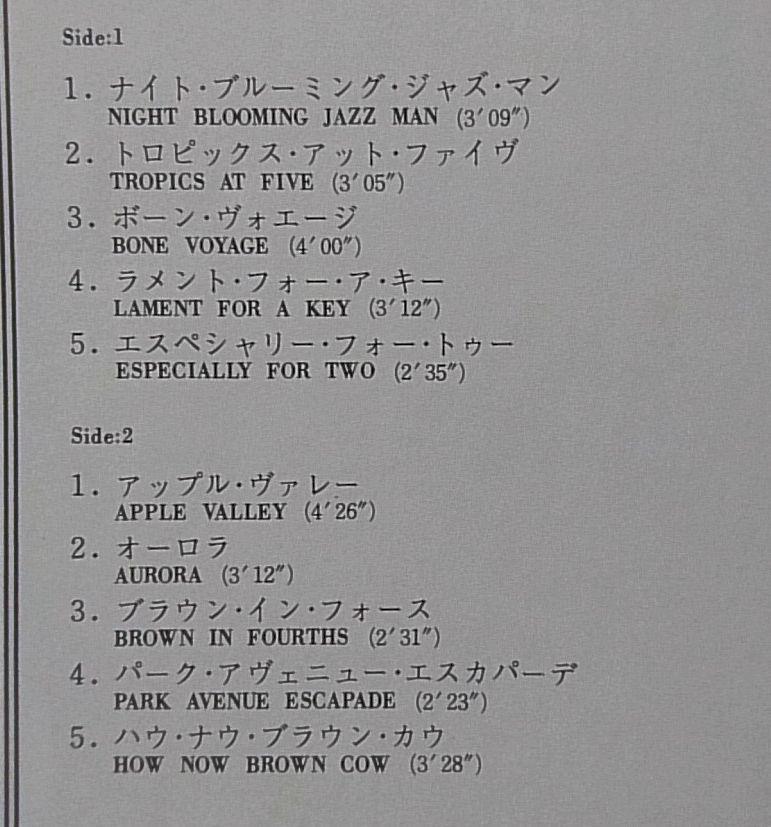 Side:1
1. ナイト・ブルーミング・ジャズ・マン
NIGHT BLOOMING JAZZ MAN (3′09″)
2. トロピックス・アット・ファイヴ
TROPICS AT FIVE (3′05″)
3. ボーン・ヴォエージ
BONE VOYAGE (4′00″)
4. ラメント・フォー・ア・キー
LAMENT FOR A KEY (3′12″)
5. エスペシャリー・フォー・トゥー
ESPECIALLY FOR TWO (2′35″)
Side:2
1. アップル・ヴァレー
APPLE VALLEY (4′26″)
2. オーロラ
AURORA (3′12″)
3. ブラウン・イン・フォース
BROWN IN FOURTHS (2′31″)
4. パーク・アヴェニュー・エスカパーデ
PARK AVENUE ESCAPADE (2′23″)
5. ハウ・ナウ・ブラウン・カウ
HOW NOW BROWN COW (3′28″)